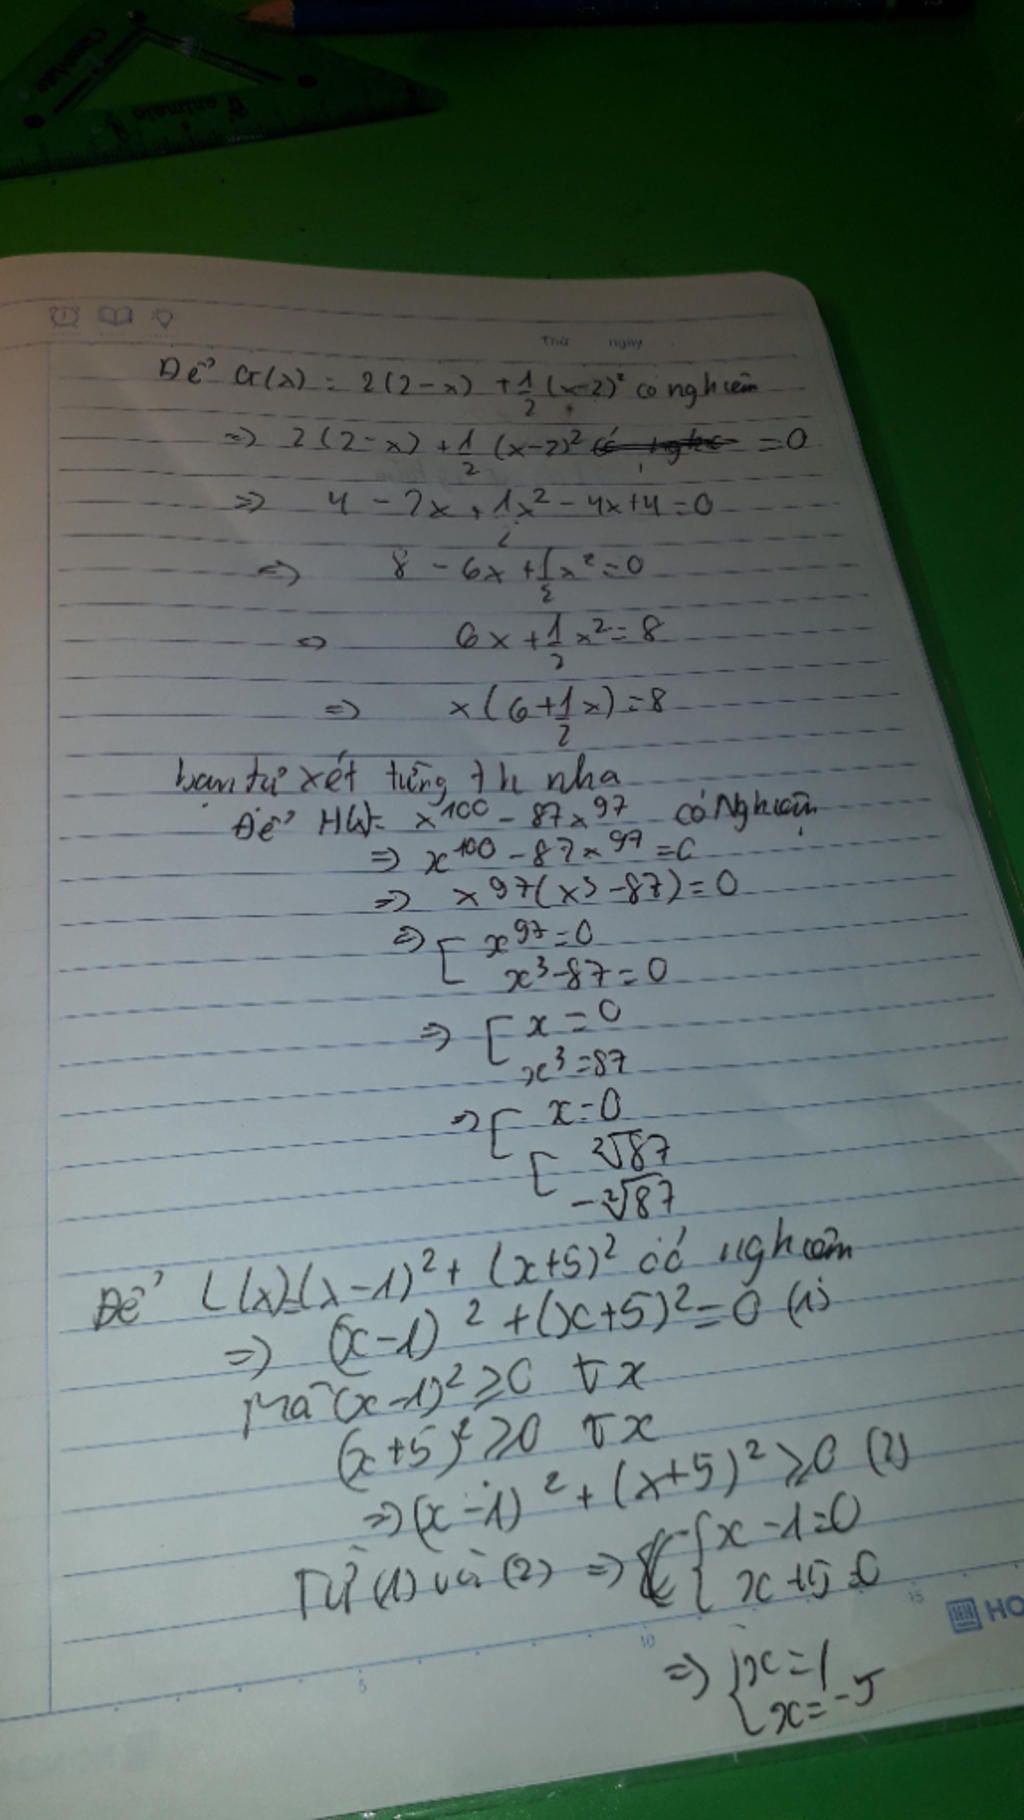 Thứ ngày
Để G(x) = 2(2-x) + 1/2 (x-2)² có nghiệm
=> 2(2-x) + 1/2 (x-2)² = 0
=> 4 - 2x + 1/2 x² - 4x + 4 = 0
<=> 8 - 6x + 1/2 x² = 0
<=> 6x + 1/2 x² = 8
=> x(6 + 1/2 x) = 8
bạn tự xét từng th nha
Để H(x) = x^100 - 87x^97 có Nghiệm
=> x^100 - 87x^97 = 0
=> x^97(x³ - 87) = 0
=> [ x^97 = 0
x³ - 87 = 0
=> [ x = 0
x³ = 87
=> [ x = 0
[ ²√87
-²√87
Để L(x) = (x-1)² + (x+5)² có nghiệm
=> (x-1)² + (x+5)² = 0 (1)
Mà (x-1)² ≥ 0 ∀x
(x+5)² ≥ 0 ∀x
=> (x-1)² + (x+5)² ≥ 0 (2)
Từ (1) và (2) => { x - 1 = 0
x + 5 = 0
=> { x = 1
x = -5
5 10 15
HO